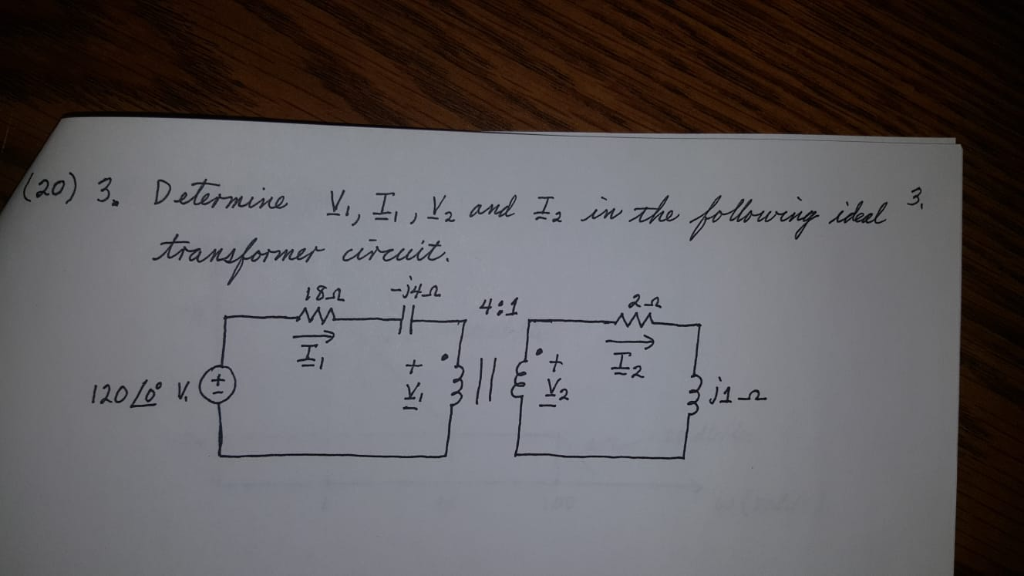 (20) 3. Determine V₁, I₁, V₂ and I₂ in the following ideal 3.
transformer circuit.
18Ω -j4Ω 4:1 2Ω
I₁ + + I₂
120/0° V. + - V₁ V₂ j1Ω
- -